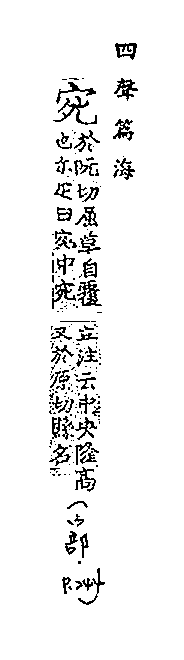 四聲篇海
宛
於阮切屈草自覆
也亦丘曰宛中宛
丘注云中央隆高
又於原切縣名
(宀部.P.244)